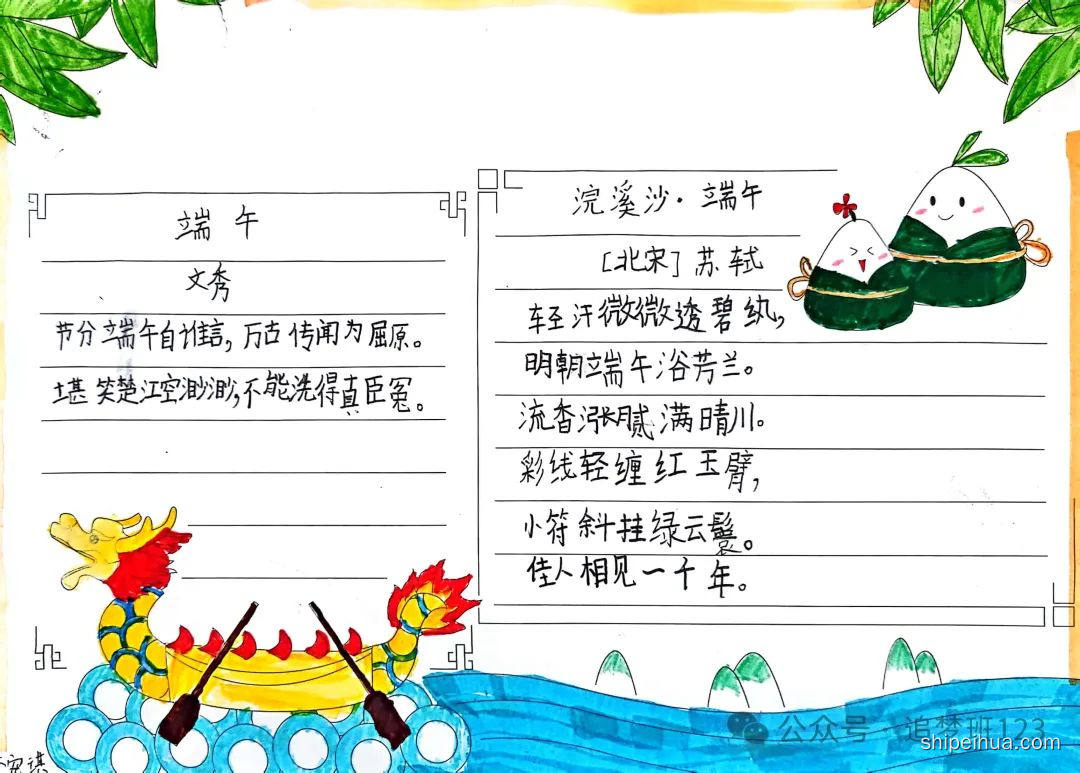 端午
文秀
节分端午自谁言，万古传闻为屈原。
堪笑楚江空渺渺，不能洗得真臣冤。
浣溪沙·端午
[北宋] 苏轼
轻汗微微透碧纨，
明朝端午浴芳兰。
流香涨腻满晴川。
彩线轻缠红玉臂，
小符斜挂绿云鬟。
佳人相见一千年。
公众号·追梦班123
shipeihua.com